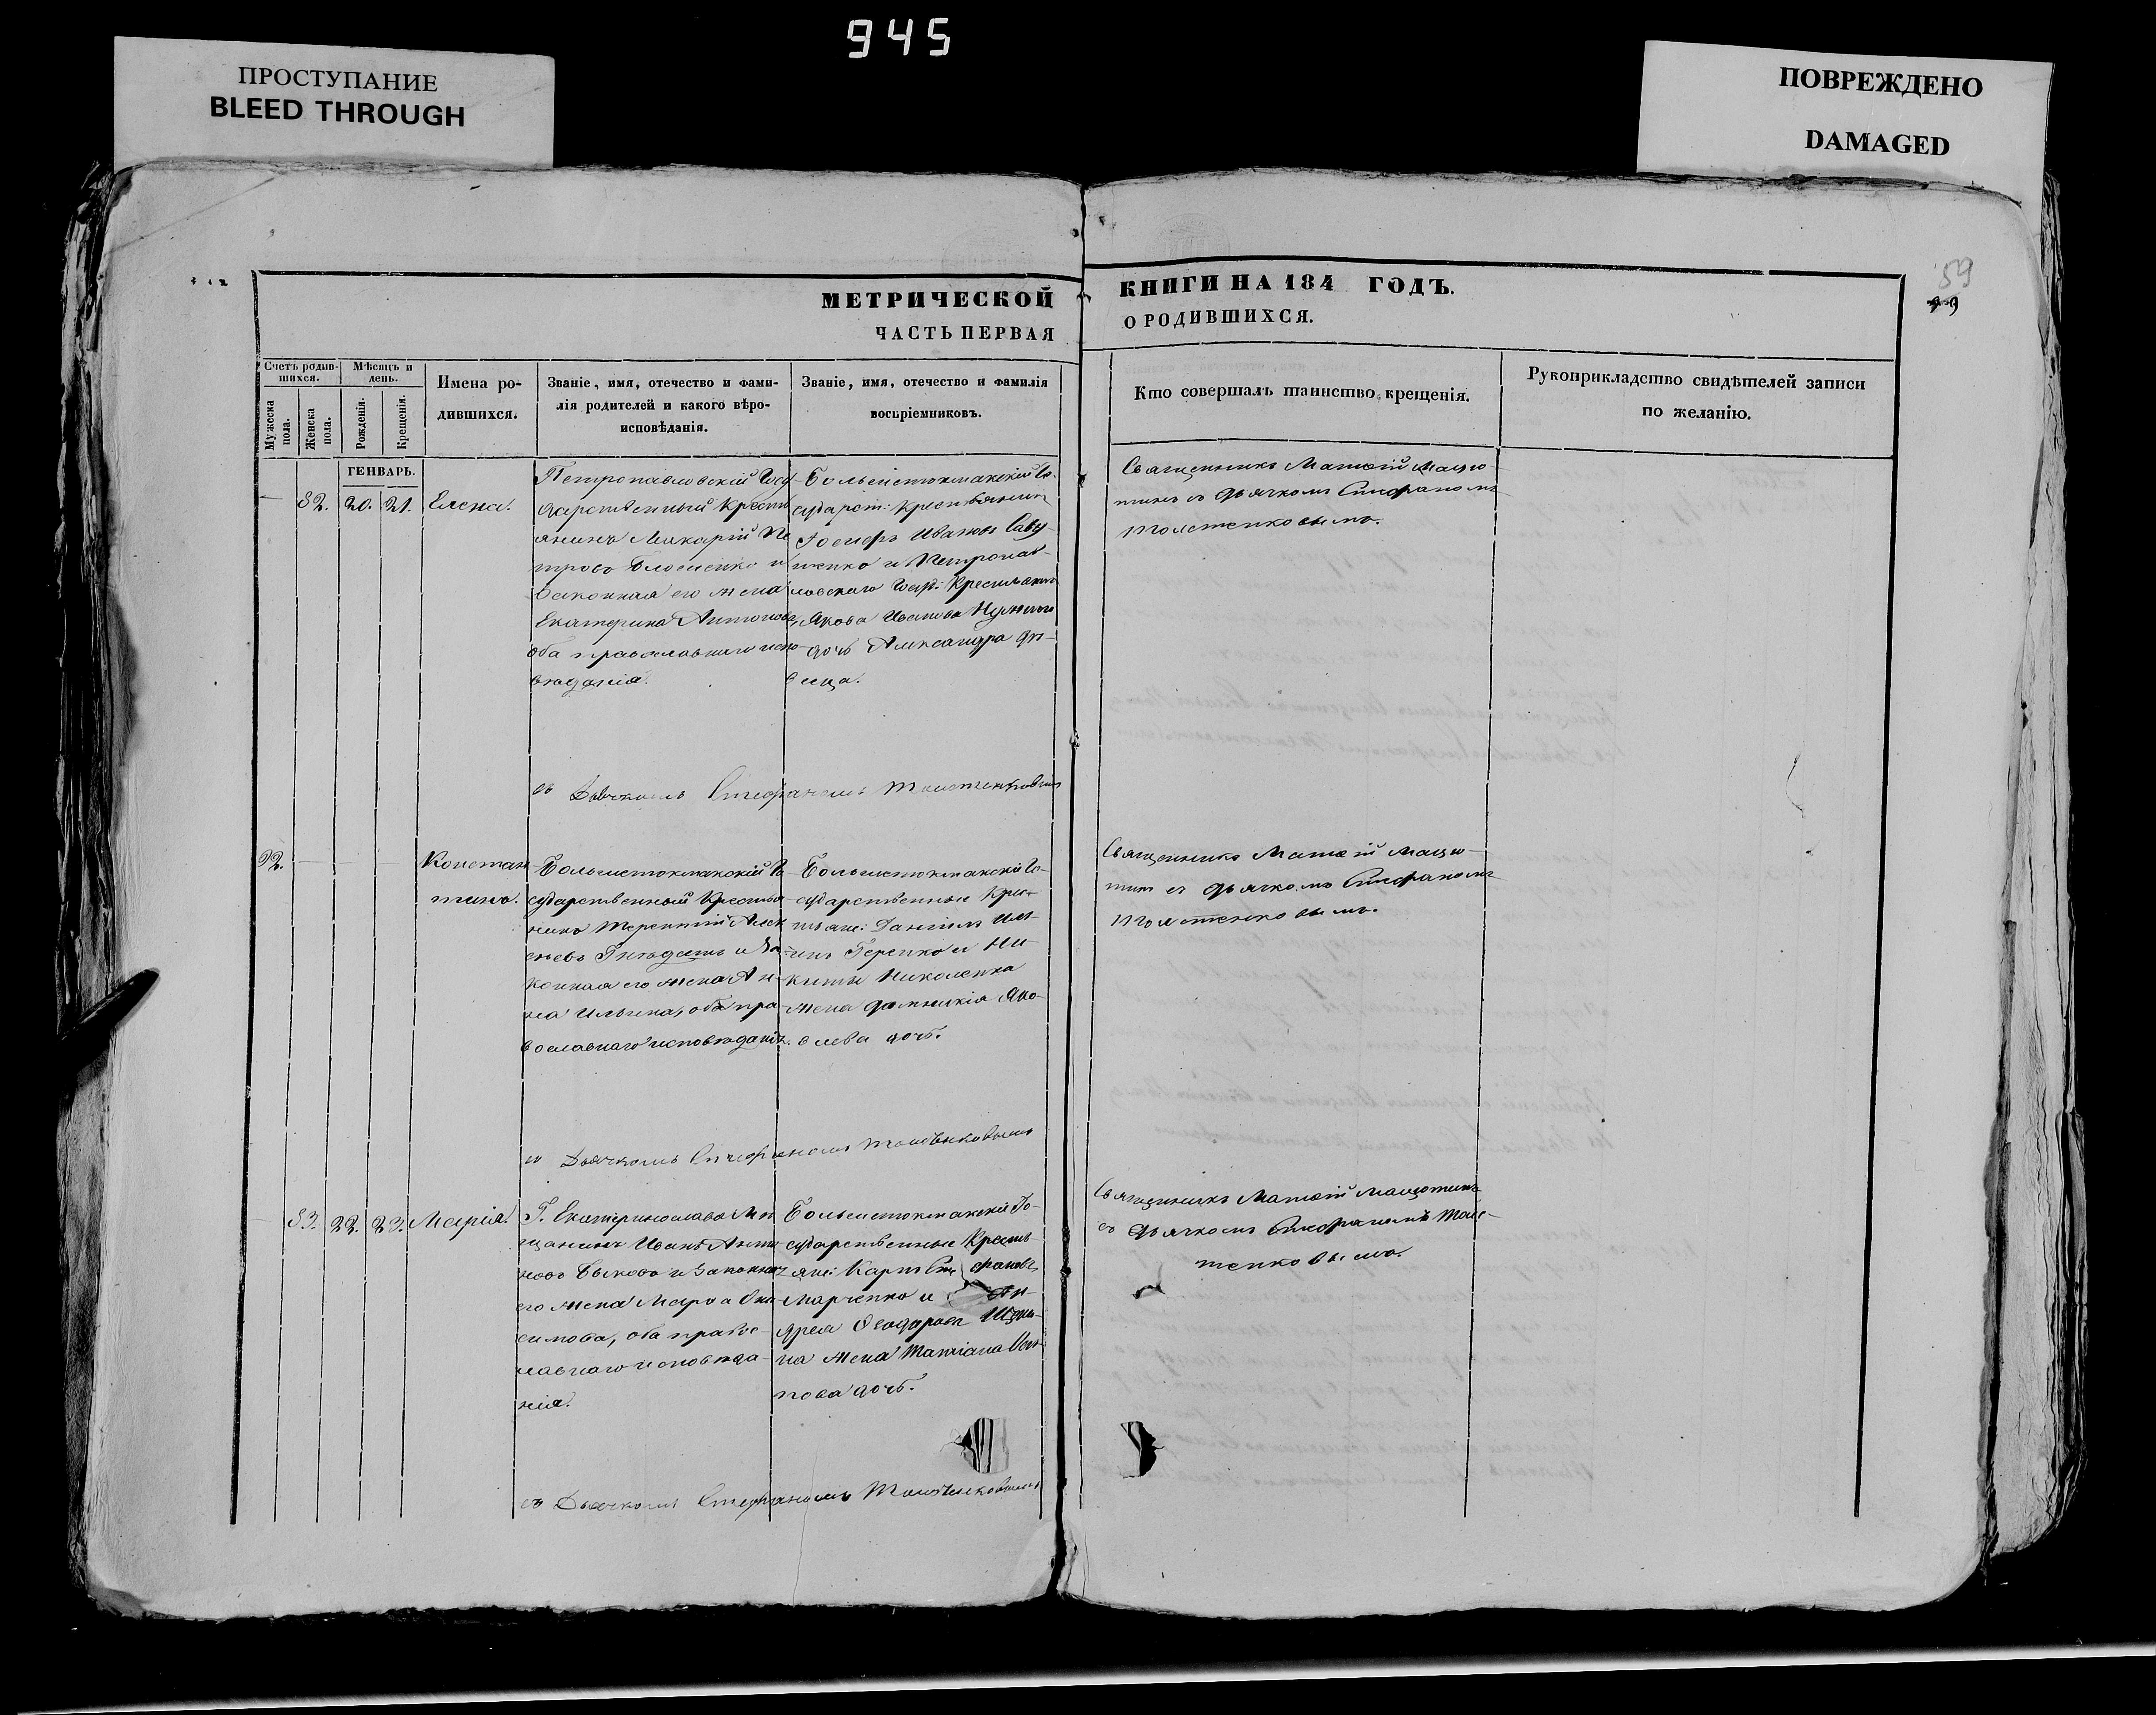 945
ПРОСТУПАНИЕ
BLEED THROUGH
ПОВРЕЖДЕНО
DAMAGED
59
МЕТРИЧЕСКОЙ
ЧАСТЬ ПЕРВАЯ
КНИГИ НА 184 ГОДЪ.
О РОДИВШИХСЯ.
Счетъ родив-
шихся.
Мужеска
пола.
Женска
пола.
Мѣсяцъ и
день.
Рожденія.
Крещенія.
Имена ро-
дившихся.
Званіе, имя, отечество и фами-
лія родителей и какого вѣро-
исповѣданія.
Званіе, имя, отечество и фамилія
воспріемниковъ.
Кто совершалъ таинство крещенія.
Рукоприкладство свидѣтелей записи
по желанію.
ГЕНВАРЬ.
82. 20. 21. Елена.
Петропавловскій Госу
дарственный Крестья
янинъ Макарій Пе
тровъ и
Законная его жена
Екатерина Антонова,
оба православнаго испо-
вѣданія.
Большетокмакскій Го-
сударст: Крестьянинъ
Іосифъ Ивановъ Саву-
ченко и Петропав-
ловскаго Госуд: Крестьянина
Якова Иванова
дочь Александра дѣ-
вица.
Священникъ Матѳій Мацю-
тинъ съ дьячкомъ Стефаномъ
Толстенковымъ.
съ Дьячкомъ Стефаномъ Толстенковымъ
92.
Констан
тинъ.
Большетокмакскій Го
сударственный Крестья
нинъ Терентій Алек
сѣевъ и За-
конная его жена Ан-
на Ильина, оба пра-
вославнаго исповѣданія.
Большетокмакскіе Го-
сударственные Крес-
тьяне: Даніилъ Иль-
инъ Геренко и Ни-
киты Николенка
жена Домникія Яко-
влева дочь.
Священникъ Матѳій Мацю-
тинъ съ дьячкомъ Стефаномъ
Толстенковымъ.
съ Дьячкомъ Стефаномъ Толстенковымъ
83. 22. 23. Марія.
Г. Екатеринослава Мѣ
щанинъ Иванъ Анто
новъ Быковъ и Законная
его жена Марѳа Они
симова, оба правос-
лавнаго исповѣда-
нія.
Большетокмакскіе Го-
сударственные Кресть-
яне: Карпъ Сте фановъ
Марченко и Ан-
дрея Ѳеодорова
на жена Татіана
пова дочь.
Священникъ Матѳій Мацютинъ
съ дьячкомъ Стефаномъ Толс-
тенковымъ.
съ Дьячкомъ Стефаномъ Толстенковымъ